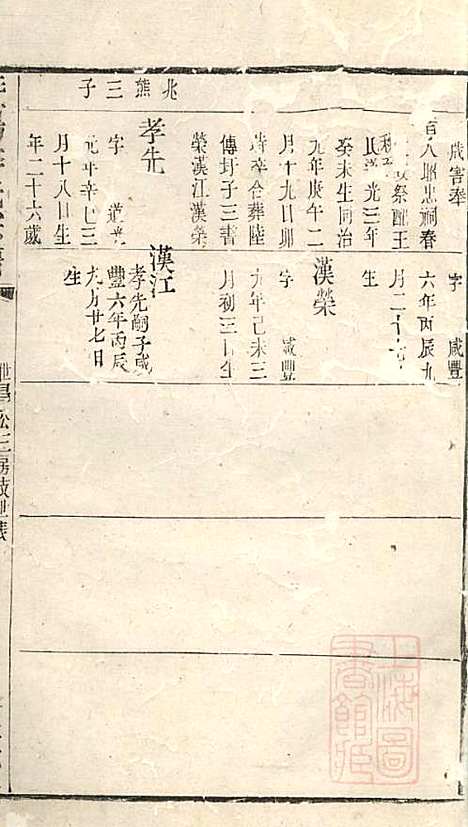 兆熊三子
害奉
旨入昭忠祠春
祭配王
氏光三年
癸未生同治
九年庚午二
月十九日卯
時卒合葬陸
傳圩子三書
榮漢江漢榮
孝先
字 道光
元年辛巳三
月十八日生
年二十六歲
字 咸豐
六年丙辰九
月二十
生
漢榮
字 咸豐
九年己未三
月初三日生
漢江
孝先嗣子咸
豐六年丙辰
九月廿七日
生
上海圖
書館藏